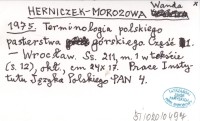 HERNICZEK-MOROZOWA Wanda
1975. Terminologia polskiego
pasterstwa górskiego Część 1.
— Wrocław. Ss. 211, m. 1 w tekście
(s. 12), okł., cm 24x17. Prace Insty-
tutu Języka Polskiego PAN 4.